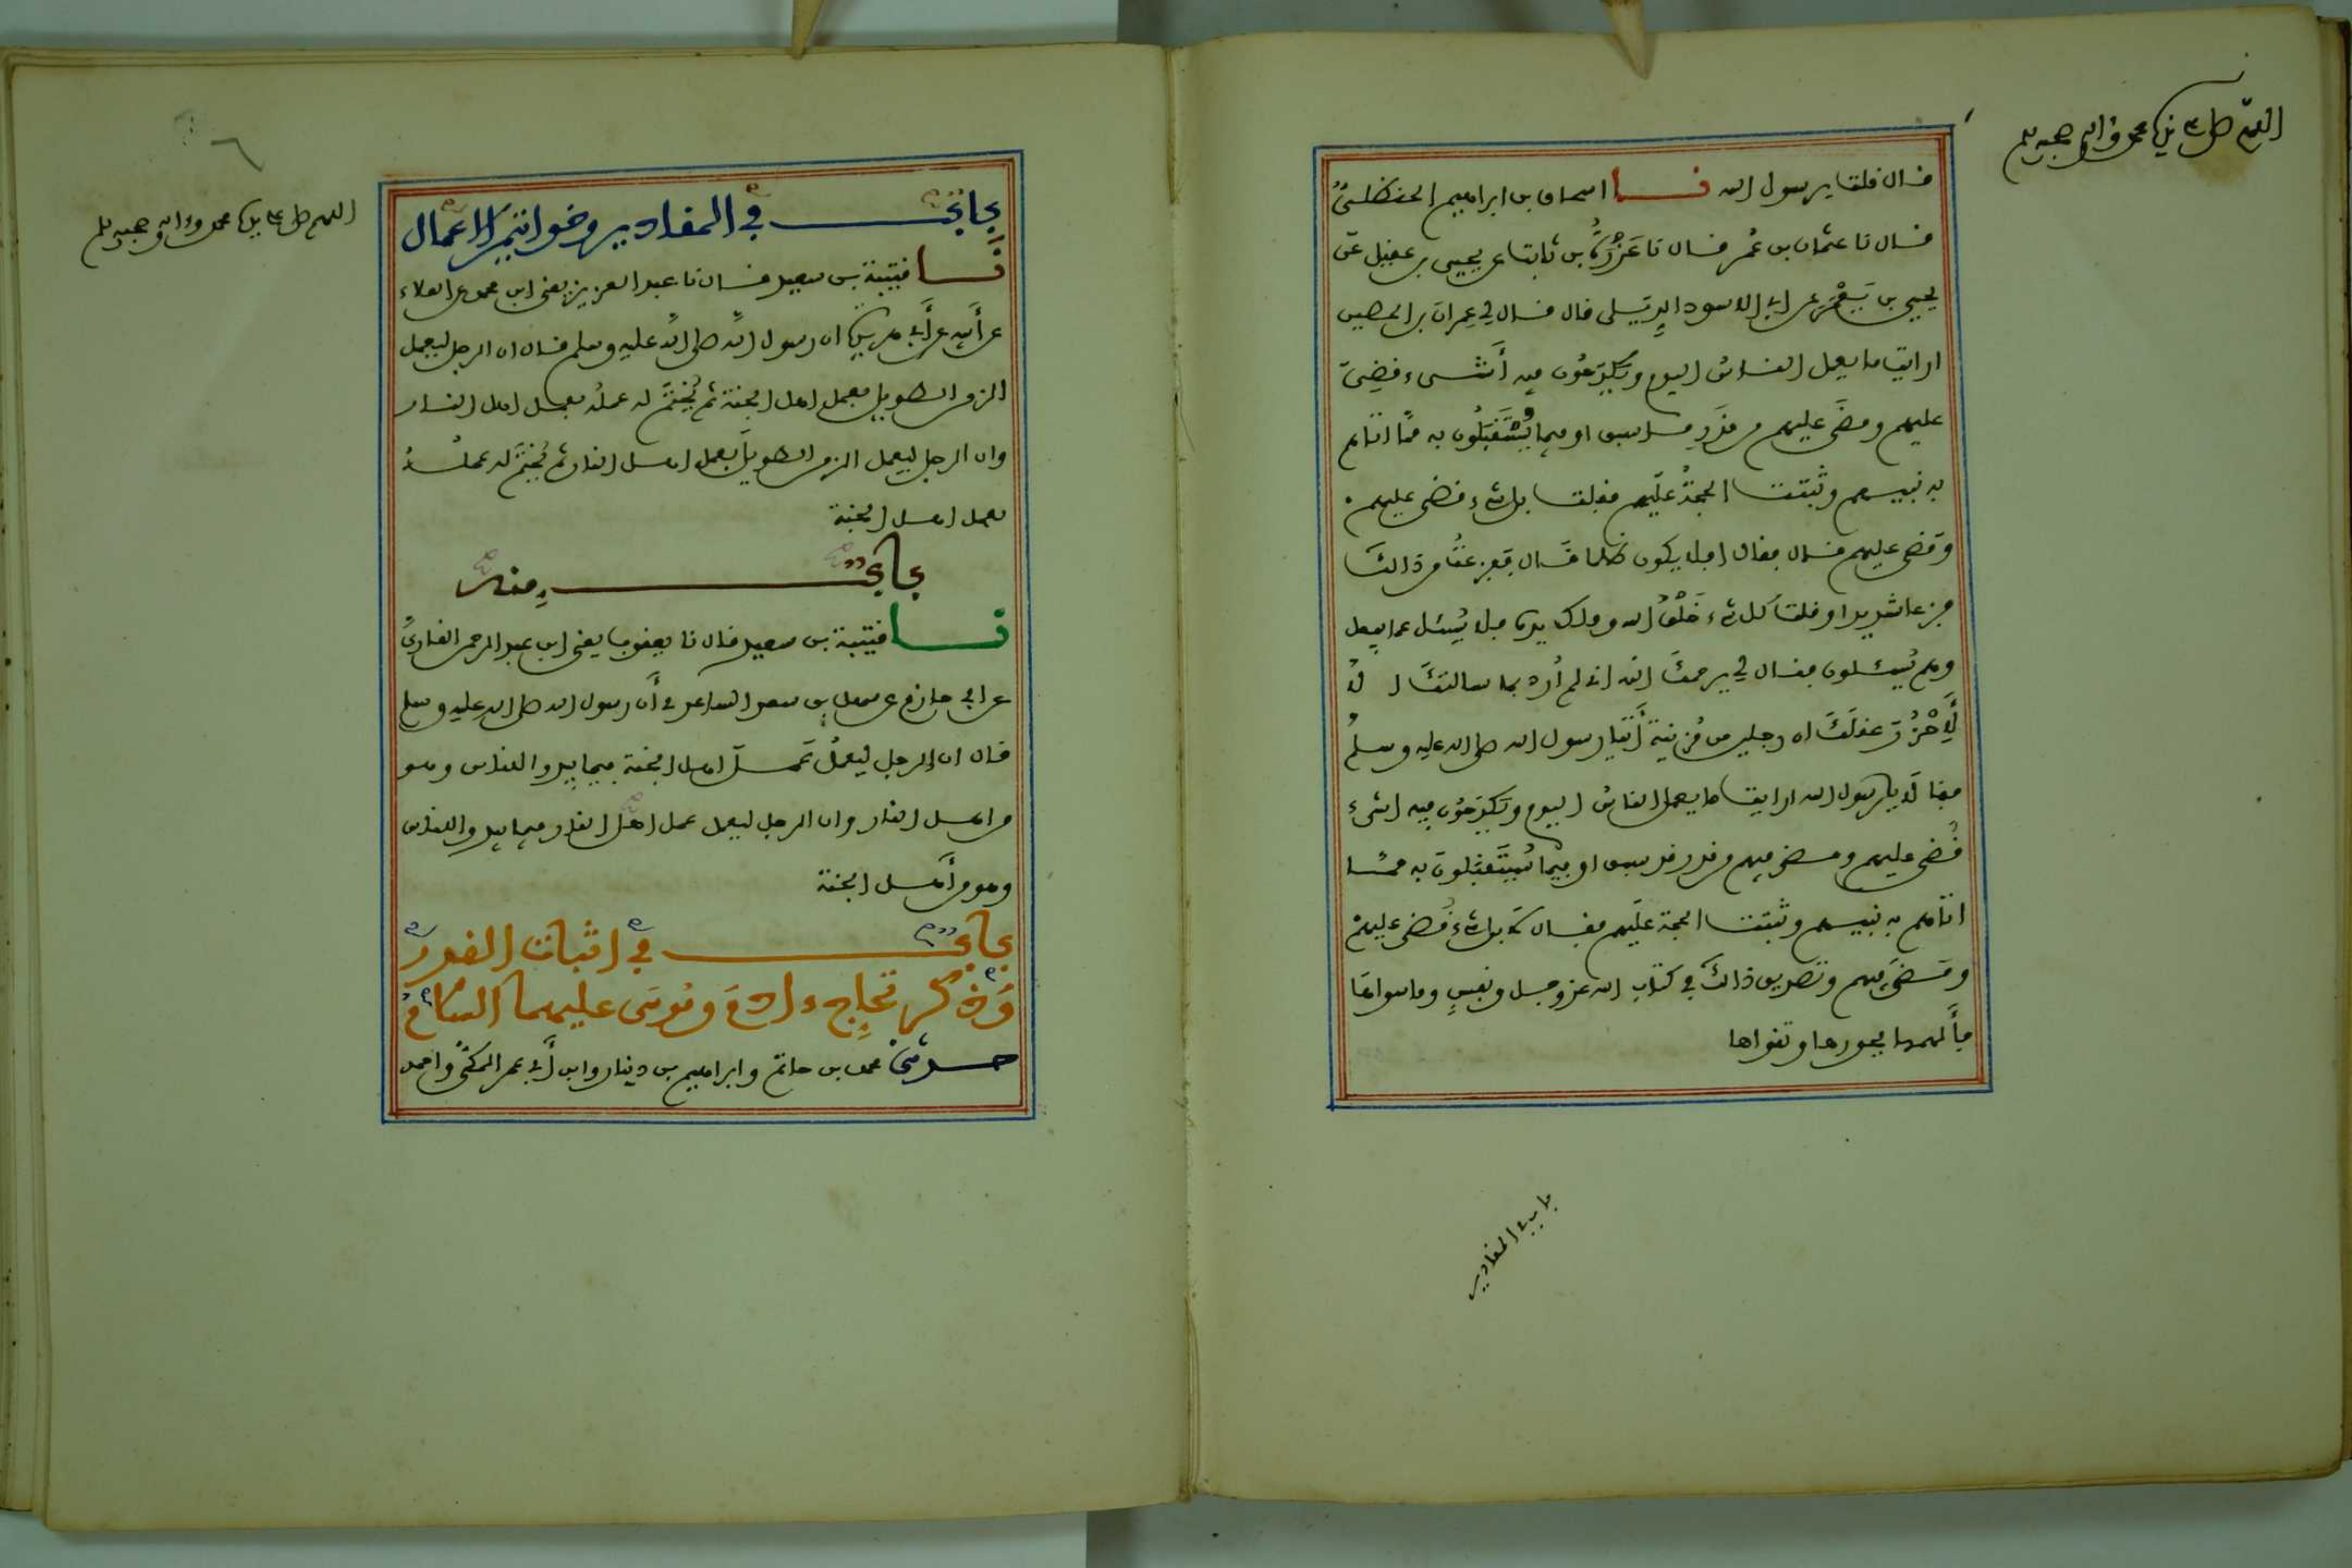 اللهم صل على نبيك محمد وءاله وصحبه وسلم
قال قلت يرسول الله نا اسحاق بن ابراهيم الحنظلي
قال نا عثمان بن عمر قال نا عزرة بن ثابت عن يحيى بن عقيل عن
يحيى بن يعمر عن ابي الاسود الديلي قال قال لي عمران بن الحصين
ارايت ما يعمل الناس اليوم ويكدحون فيه أشيء قضي
عليهم ومضى عليهم من قدر ما سبق او فيما يستقبلون به مما اتاهم
به نبيهم وثبتت الحجة عليهم فقلت بل شيء قضي عليهم
ومضى عليهم قال فقال افلا يكون ظلما قال ففزعت من ذالك
فزعا شديدا وقلت كل شيء خلق الله وملك يده فلا يسئل عما يفعل
وهم يسئلون فقال لي يرحمك الله اني لم أرد بما سالتك الا
لأحزر عقلك ان رجلين من مزينة أتيا رسول الله صلى الله عليه وسلم
فقالا يا رسول الله ارايت ما يعمل الناس اليوم ويكدحون فيه اشيء
قضي عليهم ومضى فيهم من قدر قد سبق او فيما يستقبلون به مما
اتاهم به نبيهم وثبتت الحجة عليهم فقال لا بل شيء قضي عليهم
ومضى فيهم وتصديق ذالك في كتاب الله عز وجل ونفس وما سواها
فألهمها فجورها وتقواها
باب في المقادير
٦
اللهم صل على نبيك محمد وءاله وصحبه وسلم
باب في المقادير وخواتم الاعمال
نا قتيبة بن سعيد قال نا عبد العزيز يعني ابن محمد عن العلاء
عن أبيه عن أبي هريرة ان رسول الله صلى الله عليه وسلم قال ان الرجل ليعمل
الزمن الطويل بعمل اهل الجنة ثم يختم له عمله بعمل اهل النار
وان الرجل ليعمل الزمن الطويل بعمل اهل النار ثم يختم له عمله
بعمل اهل الجنة
باب منه
نا قتيبة بن سعيد قال نا يعقوب يعني ابن عبد الرحمن القاري
عن ابي حازم عن سهل بن سعد الساعدي أن رسول الله صلى الله عليه وسلم
قال ان الرجل ليعمل عمل اهل الجنة فيما يبدو للناس وهو
من اهل النار وان الرجل ليعمل عمل اهل النار فيما يبدو للناس
وهو من أهل الجنة
باب في اثبات القدر
وذكر تحاج ءادم وموسى عليهما السلام
حدثني محمد بن حاتم وابراهيم بن دينار وابن أبي عمر المكي واحمد